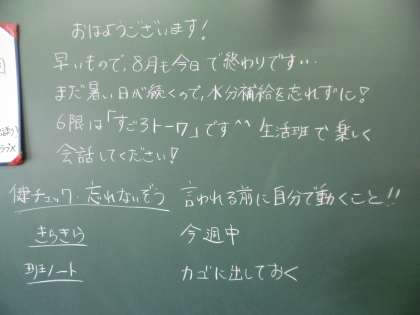 おはようございます!
早いもので、8月も今日で終わりです…
まだ暑い日が続くので、水分補給を忘れずに!
6限は「すごろトーク」です^^ 生活班で楽しく
会話してください!
健チェック・忘れないぞう 言われる前に自分で動くこと!!
きらきら 今週中
班ノート カゴに出しておく